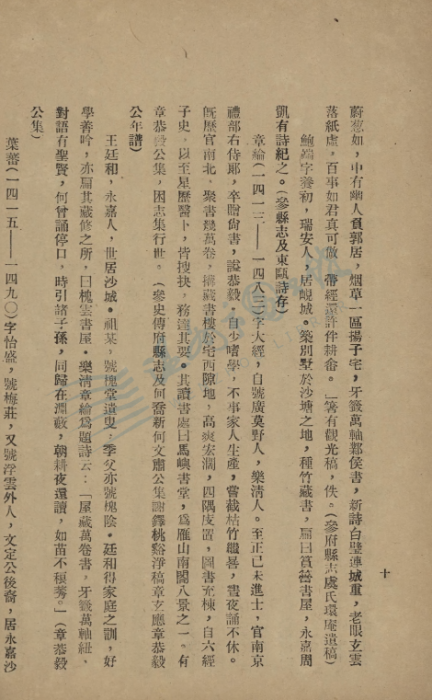 蔚葱如，中有幽人負郭居，烟草一區揚子宅，牙籤萬軸鄴侯書，新詩白璧連城重，老眼玄雲
落紙虛，百事如君真可傲　帶經還許伴耕畬。」箸有觀光稿，佚。（參府縣志虞氏環庵遺稿）
鮑端字養初，瑞安人，居峴城。築別墅於沙塘之地，種竹藏書，扁曰筼簹書屋，永嘉周
凱有詩紀之。（參縣志及東甌詩存）
章綸（一四一三——一四八三）字大經，自號廣莫野人，樂清人。至正己未進士，官南京
禮部右侍郎，卒贈尚書，謚恭毅，自少嗜學，不事家人生產，嘗截枯竹繼晷，晝夜誦不休。
既歷官南北，聚書幾萬卷，構藏書樓於宅西隙地，高爽宏濶，四隅庋置，圖書充棟，自六經
子史，以至星歷醫卜，皆搜抉，務造其要。其讀書處曰馬嶼書堂，爲雁山南閣八景之一。有
章恭毅公集，困志集行世。（參史傳府縣志及何喬新何文肅公集謝鐸桃谿淨稿章玄應章恭毅
公年譜）
王廷和，永嘉人，世居沙城。祖某，號槐堂遺叟，季父亦號槐陰。廷和得家庭之訓，好
學善吟，亦扁其藏修之所，曰槐雲書屋。樂清章綸爲題詩云：「屋藏萬卷書，牙籤萬軸紐，
對語有聖賢，何曾誦停口，時引諸子孫，同歸在淵藪，朝耕夜還讀，如苗不稂莠。」（章恭毅
公集）
葉蕃（一四一五——一四九〇）字怡盛，號梅莊，又號浮雲外人，文定公後裔，居永嘉沙
十